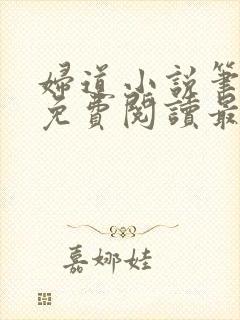 婦道小說筆
免費閱讀最
嘉娜娃